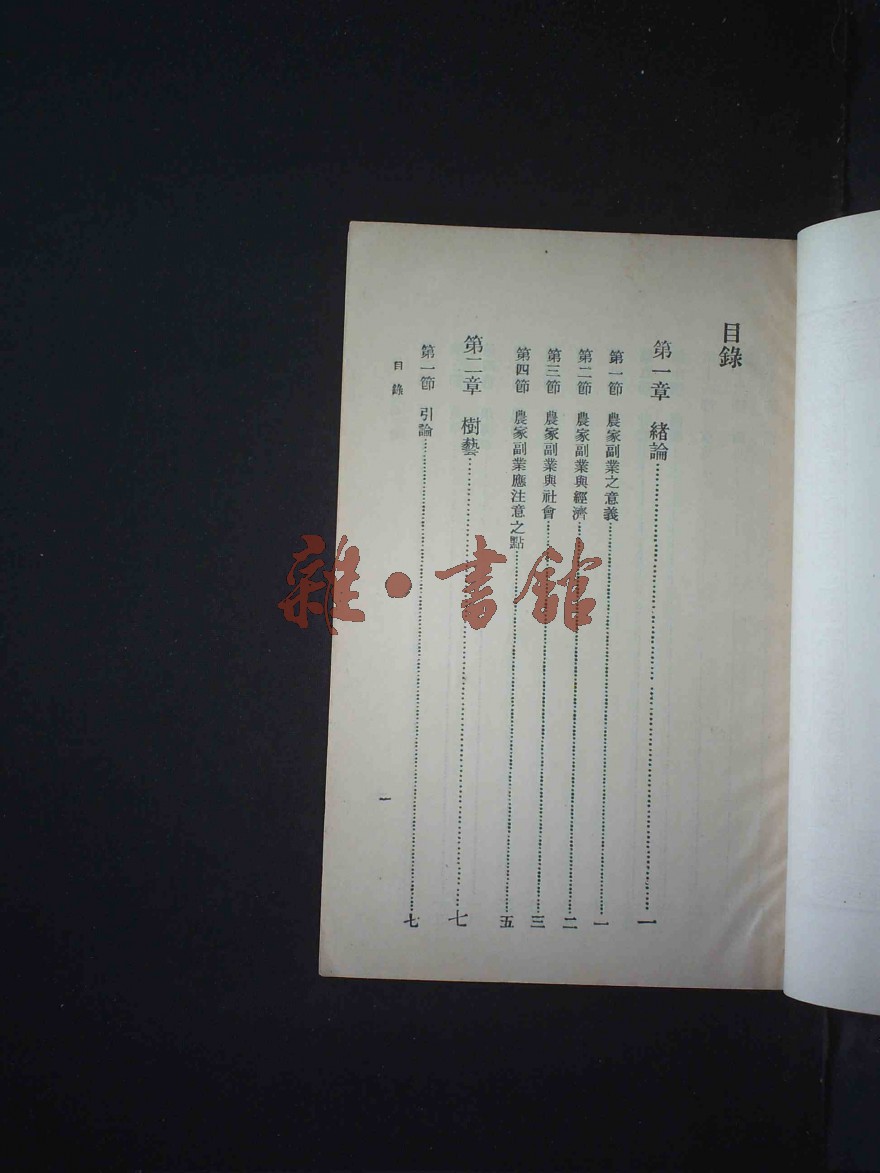 目錄
第一章 緒論……一
第一節 農家副業之意義……一
第二節 農家副業與經濟……二
第三節 農家副業與社會……三
第四節 農家副業應注意之點……五
第二章 樹藝……七
第一節 引論……七
目錄
一
雜·書館